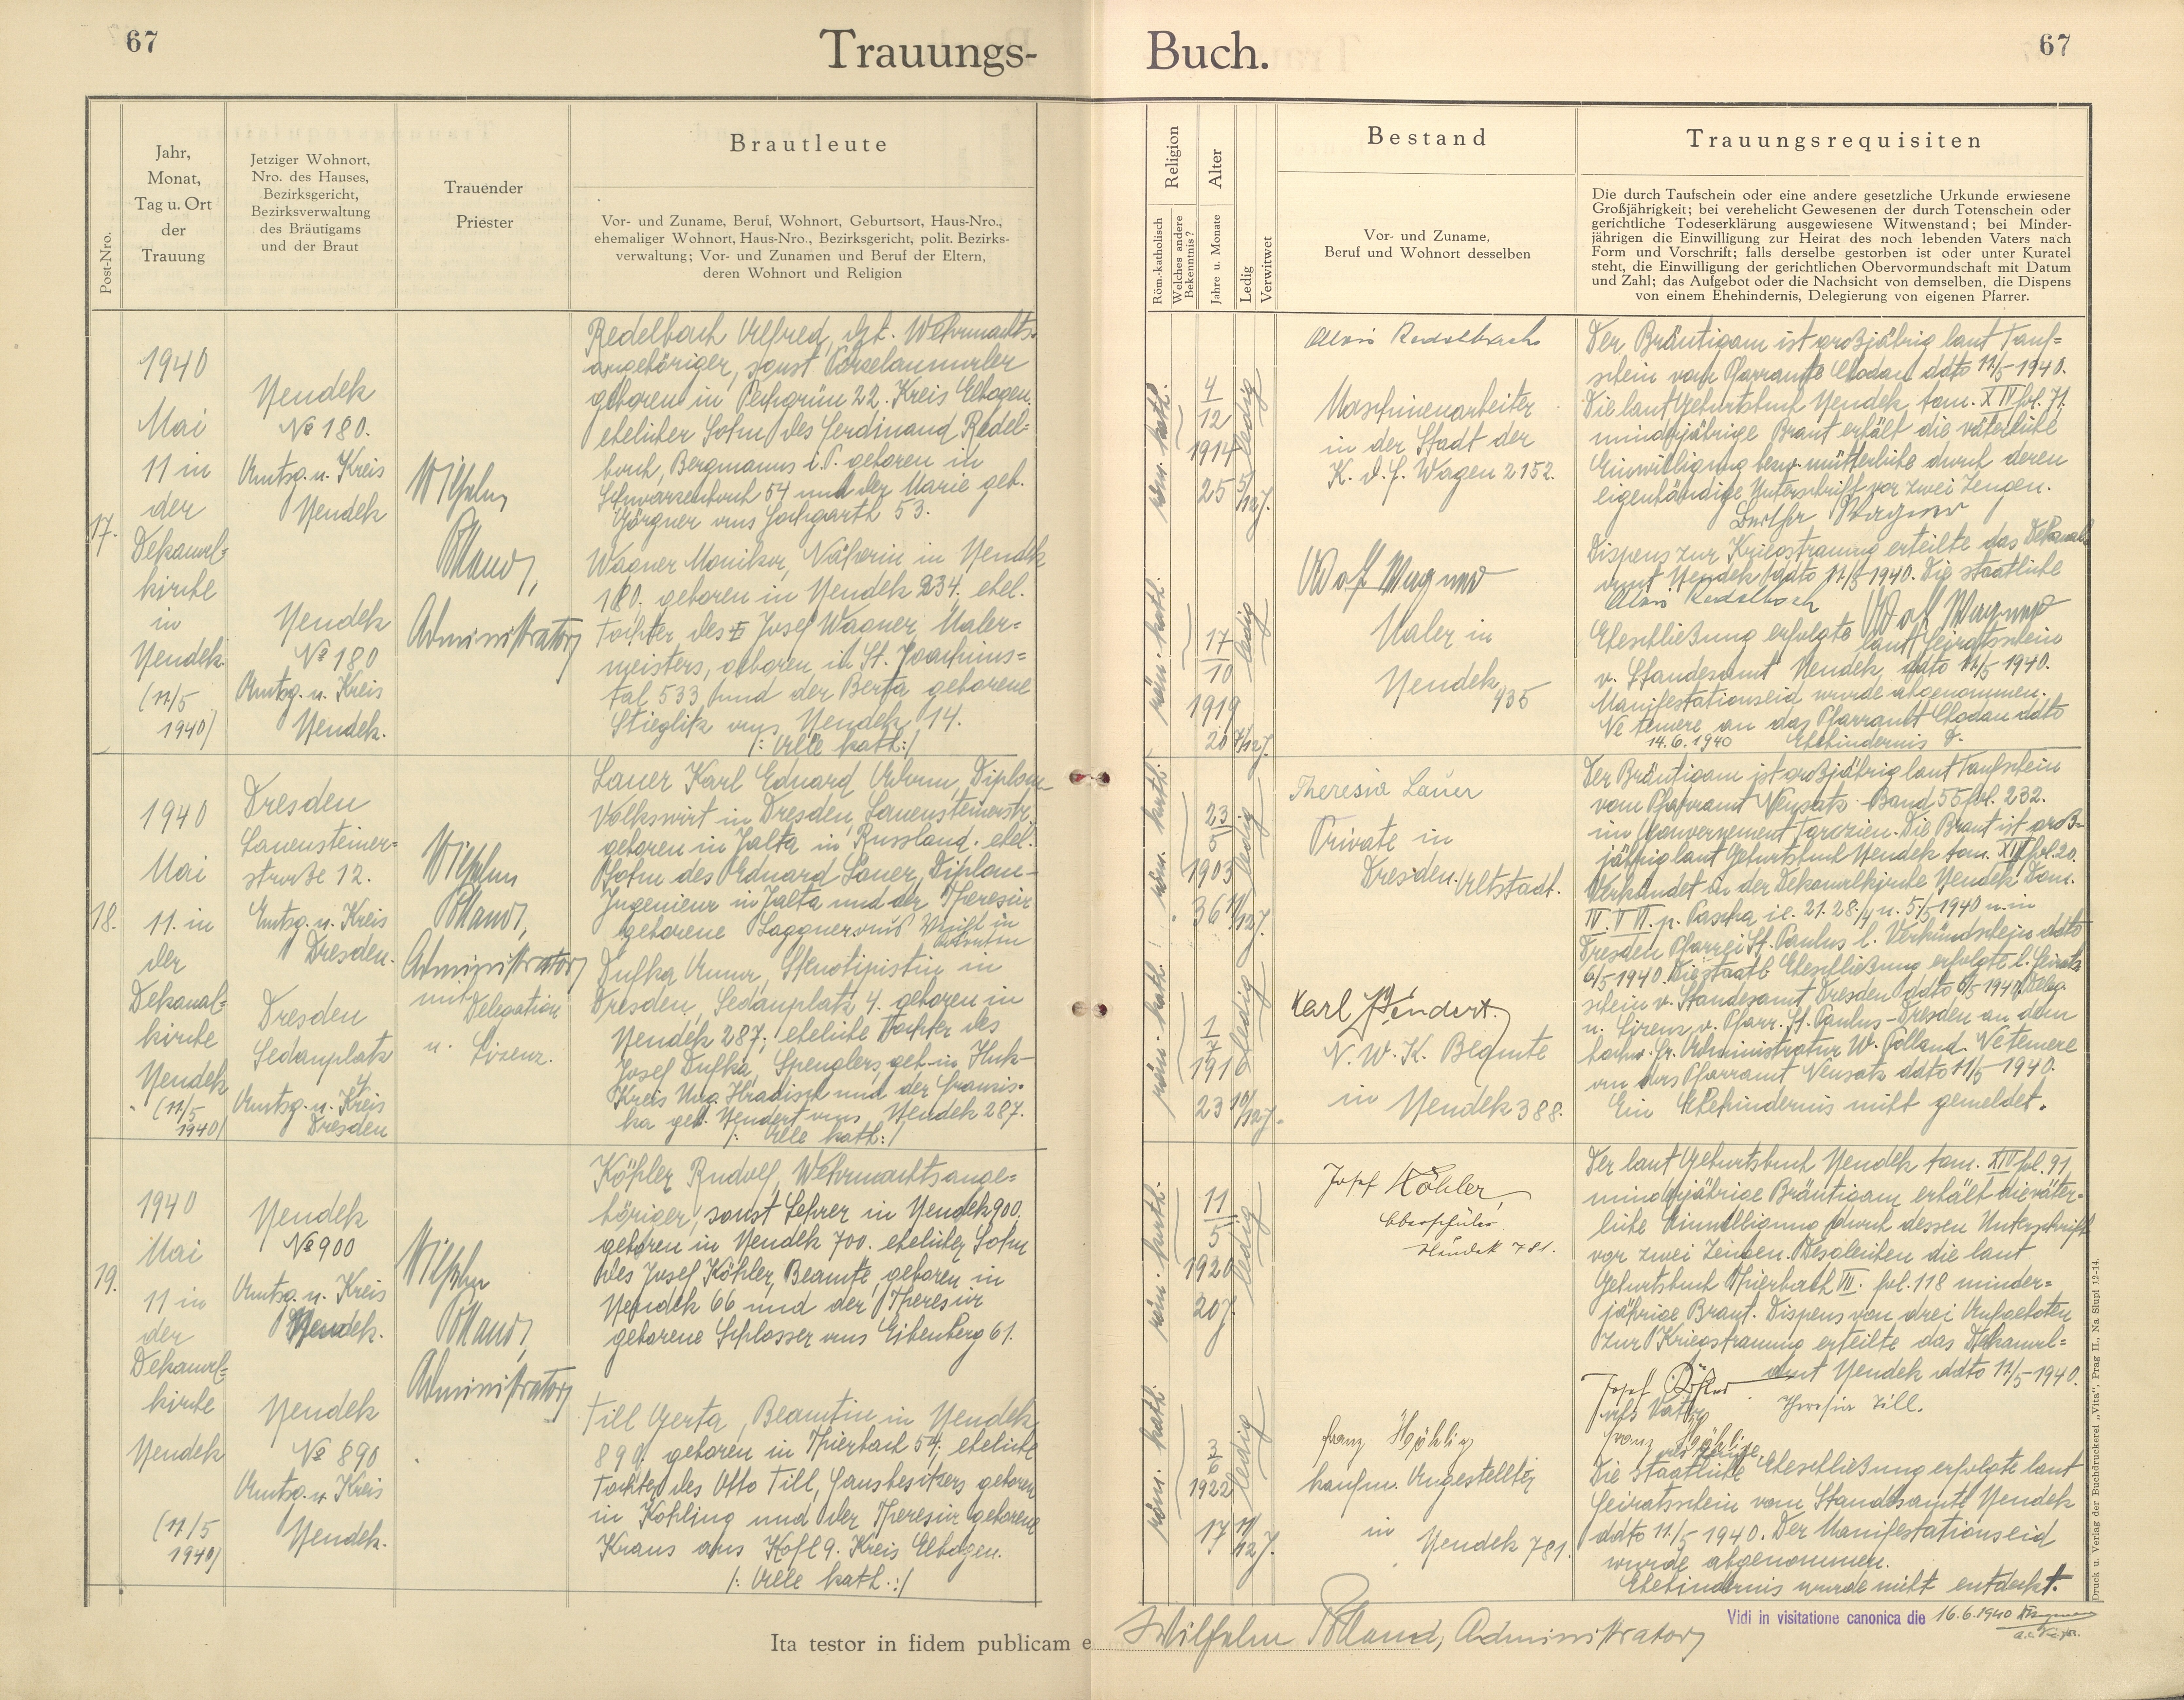 67
Trauungs-
Buch.
67
Post-Nro.
Jahr,
Monat,
Tag u. Ort
der
Trauung
Jetziger Wohnort,
Nro. des Hauses,
Bezirksgericht,
Bezirksverwaltung
des Bräutigams
und der Braut
Trauender
Priester
Brautleute
Vor- und Zuname, Beruf, Wohnort, Geburtsort, Haus-Nro.,
ehemaliger Wohnort, Haus-Nro., Bezirksgericht, polit. Bezirks-
verwaltung; Vor- und Zunamen und Beruf der Eltern,
deren Wohnort und Religion
Religion
Röm.-katholisch
Welches andere
Bekenntnis?
Alter
Jahre u. Monate
Ledig
Verwitwet
Bestand
Vor- und Zuname,
Beruf und Wohnort desselben
Trauungsrequisiten
Die durch Taufschein oder eine andere gesetzliche Urkunde erwiesene
Großjährigkeit; bei verehelicht Gewesenen der durch Totenschein oder
gerichtliche Todeserklärung ausgewiesene Witwenstand; bei Minder-
jährigen die Einwilligung zur Heirat des noch lebenden Vaters nach
Form und Vorschrift; falls derselbe gestorben ist oder unter Kuratel
steht, die Einwilligung der gerichtlichen Obervormundschaft mit Datum
und Zahl; das Aufgebot oder die Nachsicht von demselben, die Dispens
von einem Ehehindernis, Delegierung von eigenen Pfarrer.
17.
1940
Mai
11 in
der
Dekanal-
kirche
in
Neudek.
(11/5
1940)
Neudek
№ 180.
Amtsg. u. Kreis
Neudek
Neudek
№ 180
Amtsg. u. Kreis
Neudek.
Wilhelm
Polland,
Administrator
Redelbach Alfred, dzt. Wehrmachts-
angehöriger, sonst Porzelanmaler
geboren in Pechgrün 22. Kreis Elbogen.
ehelicher Sohn des Ferdinand Redel-
bach, Bergmanns i. P. geboren in
Schwarzenbach 54 und der Marie geb.
Görgner aus Hochgarth 53.
Wagner Monika, Näherin in Neudek
180. geboren in Neudek 234, ehel.
Tochter des Josef Wagner, Maler-
meisters, geboren in St. Joachims-
tal 533 und der Berta geborene
Stieglitz aus Neudek 14.
/: Alle kath:/
röm. kath.
4
12
1914
25 5/12 J.
ledig
röm. kath.
17
10
1919
20 7/12 J.
ledig
Alois Redelbach
Maschinenarbeiter
in der Stadt der
K. d. F. Wagen 2152.
Adolf Wagner
Maler in
Neudek 935
Der Bräutigam ist großjährig laut Tauf-
schein vom Pfarramte Chodau ddto 11/5 1940.
Die laut Geburtsbuch Neudek tom. XIV fol. 71.
minderjährige Braut erhält die väterliche
Einwilligung bezw. mütterliche durch deren
eigenhändige Unterschrift vor zwei Zeugen.
Bertha Wagner
Dispens zur Kriegstrauung erteilte das Dekanal-
amt Neudek ddto 11/5 1940. Die staatliche
Alois Redelbach Adolf Wagner
Eheschließung erfolgte laut Heiratsschein
v. Standesamt Neudek ddto 11/5 1940.
Manifestationseid wurde abgenommen.
Ne temere an das Pfarramt Chodau ddto
14.6.1940 Ehehindernis
18.
1940
Mai
11. in
der
Dekanal-
kirche
Neudek
(11/5
1940)
Dresden
Lauensteiner-
straße 12.
Amtsg. u. Kreis
Dresden.
Dresden
Sedanplatz
4
Amtsg. u. Kreis
Dresden
Wilhelm
Polland,
Administrator
mit Delegation
u. Lizenz.
Lauer Karl Eduard Adam, Diplom-
Volkswirt in Dresden, Lauensteinerstr.
geboren in Jalta in Russland. ehel.
Sohn des Eduard Lauer, Diplom-
Ingenieur in Jalta und der Theresia
geborene Laggner aus
Dufka Anna, Stenotipistin in
Dresden, Sedanplatz 4. geboren in
Neudek 287; eheliche Tochter des
Josef Dufka, Spenglers, geb. in Huk-
Kreis Ung. Hradisch und der Franzis-
ka geb. Hendert aus Neudek 287.
/: Alle kath:/
röm. kath.
23
5
1903
36 11/12 J.
ledig
röm. kath.
1
7
1916
23 10/12 J.
ledig
Theresia Lauer
Private in
Dresden-Altstadt.
Karl Hendert.
N. W. K. Beamte
in Neudek 388.
Der Bräutigam ist großjährig laut Taufschein
vom Pfarramt Neusatz Band 55 fol. 232.
im Gouvernement Taurien. Die Braut ist groß-
jährig laut Geburtsbuch Neudek tom. XIII fol. 20.
Verkündet in der Dekanalkirche Neudek Dom.
IV. V. VI. p. Pascha ie. 21. 28./4 u. 5./5 1940 u. in
Dresden Pfarrei St. Paulus l. Verkündschein ddto
6/5 1940. Die staatl. Eheschließung erfolgte l. Heirats-
schein v. Standesamt Dresden ddto 6/5 1940. Deleg.
u. Lizenz v. Pfarr. St. Paulus-Dresden an den
hochw. Hr. Administrator W. Polland. Ne temere
an das Pfarramt Neusatz ddto 11/5 1940.
Ein Ehehindernis nicht gemeldet.
19.
1940
Mai
11 in
der
Dekanal-
kirche
Neudek
(11/5
1940)
Neudek
№ 900
Amtsg. u. Kreis
Neudek.
Neudek
№ 890
Amtsg. u. Kreis
Neudek.
Wilhelm
Polland,
Administrator
Köhler Rudolf, Wehrmachtsange-
höriger, sonst Lehrer in Neudek 900.
geboren in Neudek 700. ehelicher Sohn
des Josef Köhler, Beamte, geboren in
Neudek 66 und der Theresia
geborene Schlosser aus Eibenberg 61.
Till Gerta, Beamtin in Neudek
890. geboren in Thierbach 54; eheliche
Tochter des Otto Till, Hausbesitzers geboren
in Kohling und der Theresia geborene
Kraus aus Kösl 9. Kreis Elbogen.
/: Alle kath.:/
röm. kath.
11
5
1920
20 J.
ledig
röm. kath.
3
6
1922
17 11/12 J.
ledig
Josef Köhler
Oberschüler.
Neudek 781.
Franz
kaufm. Angestellter
in Neudek 781.
Der laut Geburtsbuch Neudek tom. XIV fol. 91
minderjährige Bräutigam erhält die väter-
liche Einwilligung durch dessen Unterschrift
vor zwei Zeugen. Desgleichen die laut
Geburtsbuch Thierbach VII. fol. 118 minder-
jährige Braut. Dispens von drei Aufgeboten
zur Kriegstrauung erteilte das Dekanal-
amt Neudek ddto 11/5 1940.
Josef Köhler
als Vater Theresia Till.
Franz
als Zeuge
Die staatliche Eheschließung erfolgte laut
Heiratsschein vom Standesamte Neudek
ddto 11./5 1940. Der Manifestationseid
wurde abgenommen.
Ehehindernis wurde nicht entdeckt.
Ita testor in fidem publicam e
Wilhelm Polland, Administrator
Vidi in visitatione canonica die 16.6.1940
Druck u. Verlag der Buchdruckerei „Vita“, Prag II., Na Slupi 12-14.